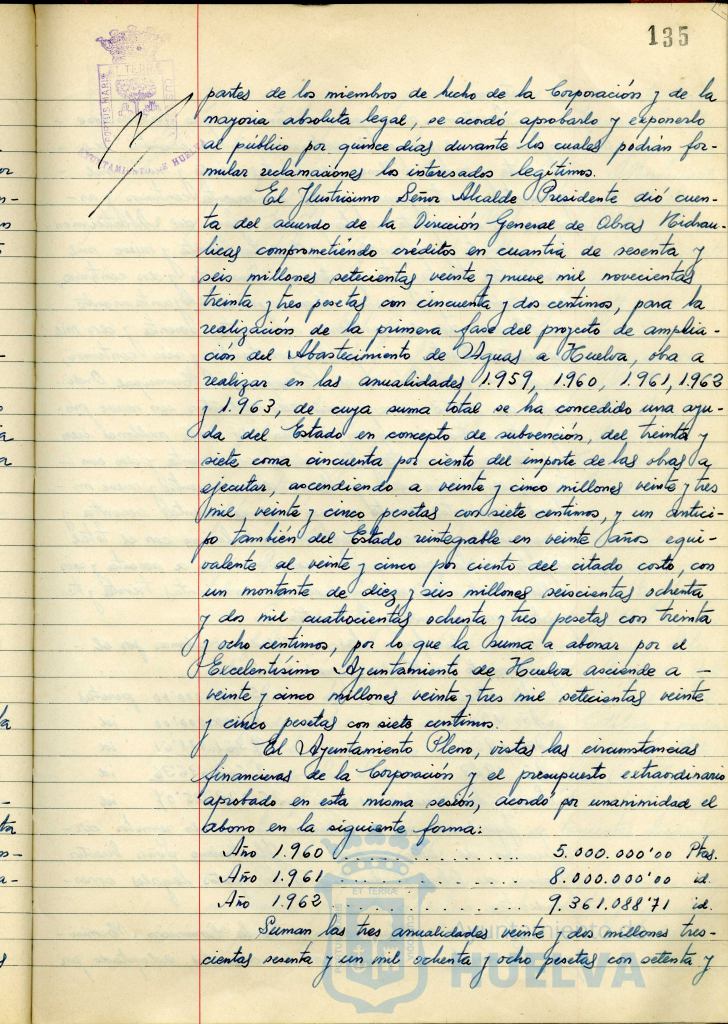 135
ET TERRÆ
PORTUS MARIS
CUSTODIA
AYUNTAMIENTO DE HUELVA
partes de los miembros de hecho de la Corporación y de la
mayoria absoluta legal, se acordó aprobarlo y exponerlo
al público por quince días durante los cuales podrán for-
mular reclamaciones los interesados legítimos.
El Ilustrísimo Señor Alcalde Presidente dió cuen-
ta del acuerdo de la Dirección General de Obras Hidrau-
licas comprometiendo créditos en cuantía de sesenta y
seis millones setecientas veinte y nueve mil novecientas
treinta y tres pesetas con cincuenta y dos centimos, para la
realización de la primera fase del proyecto de amplia-
ción del Abastecimiento de Aguas a Huelva, obra a
realizar en las anualidades 1.959, 1.960, 1.961, 1.962
y 1.963, de cuya suma total se ha concedido una ayu-
da del Estado en concepto de subvención, del treinta y
siete coma cincuenta por ciento del importe de las obras a
ejecutar, ascendiendo a veinte y cinco millones veinte y tres
mil, veinte y cinco pesetas con siete centimos, y un antici-
po también del Estado reintegrable en veinte años equi-
valente al veinte y cinco por ciento del citado costo, con
un montante de diez y seis millones seiscientas ochenta
y dos mil cuatrocientas ochenta y tres pesetas con treinta
y ocho centimos, por lo que la suma a abonar por el
Excelentísimo Ayuntamiento de Huelva asciende a —
veinte y cinco millones veinte y tres mil setecientas veinte
y cinco pesetas con siete centimos.
El Ayuntamiento Pleno, vistas las circunstancias
financieras de la Corporación y el presupuesto extraordinario
aprobado en esta misma sesión, acordó por unanimidad el
abono en la siguiente forma:
Año 1.960 .................... 5.000.000'00 Ptas.
Año 1.961 .................... 8.000.000'00 id.
Año 1.962 .................... 9.361.088'71 id.
Suman las tres anualidades veinte y dos millones tres-
cientas sesenta y un mil ochenta y ocho pesetas con setenta y
ET TERRÆ
PORTUS MARIS
CUSTODIA
Ayuntamiento de
HUELVA